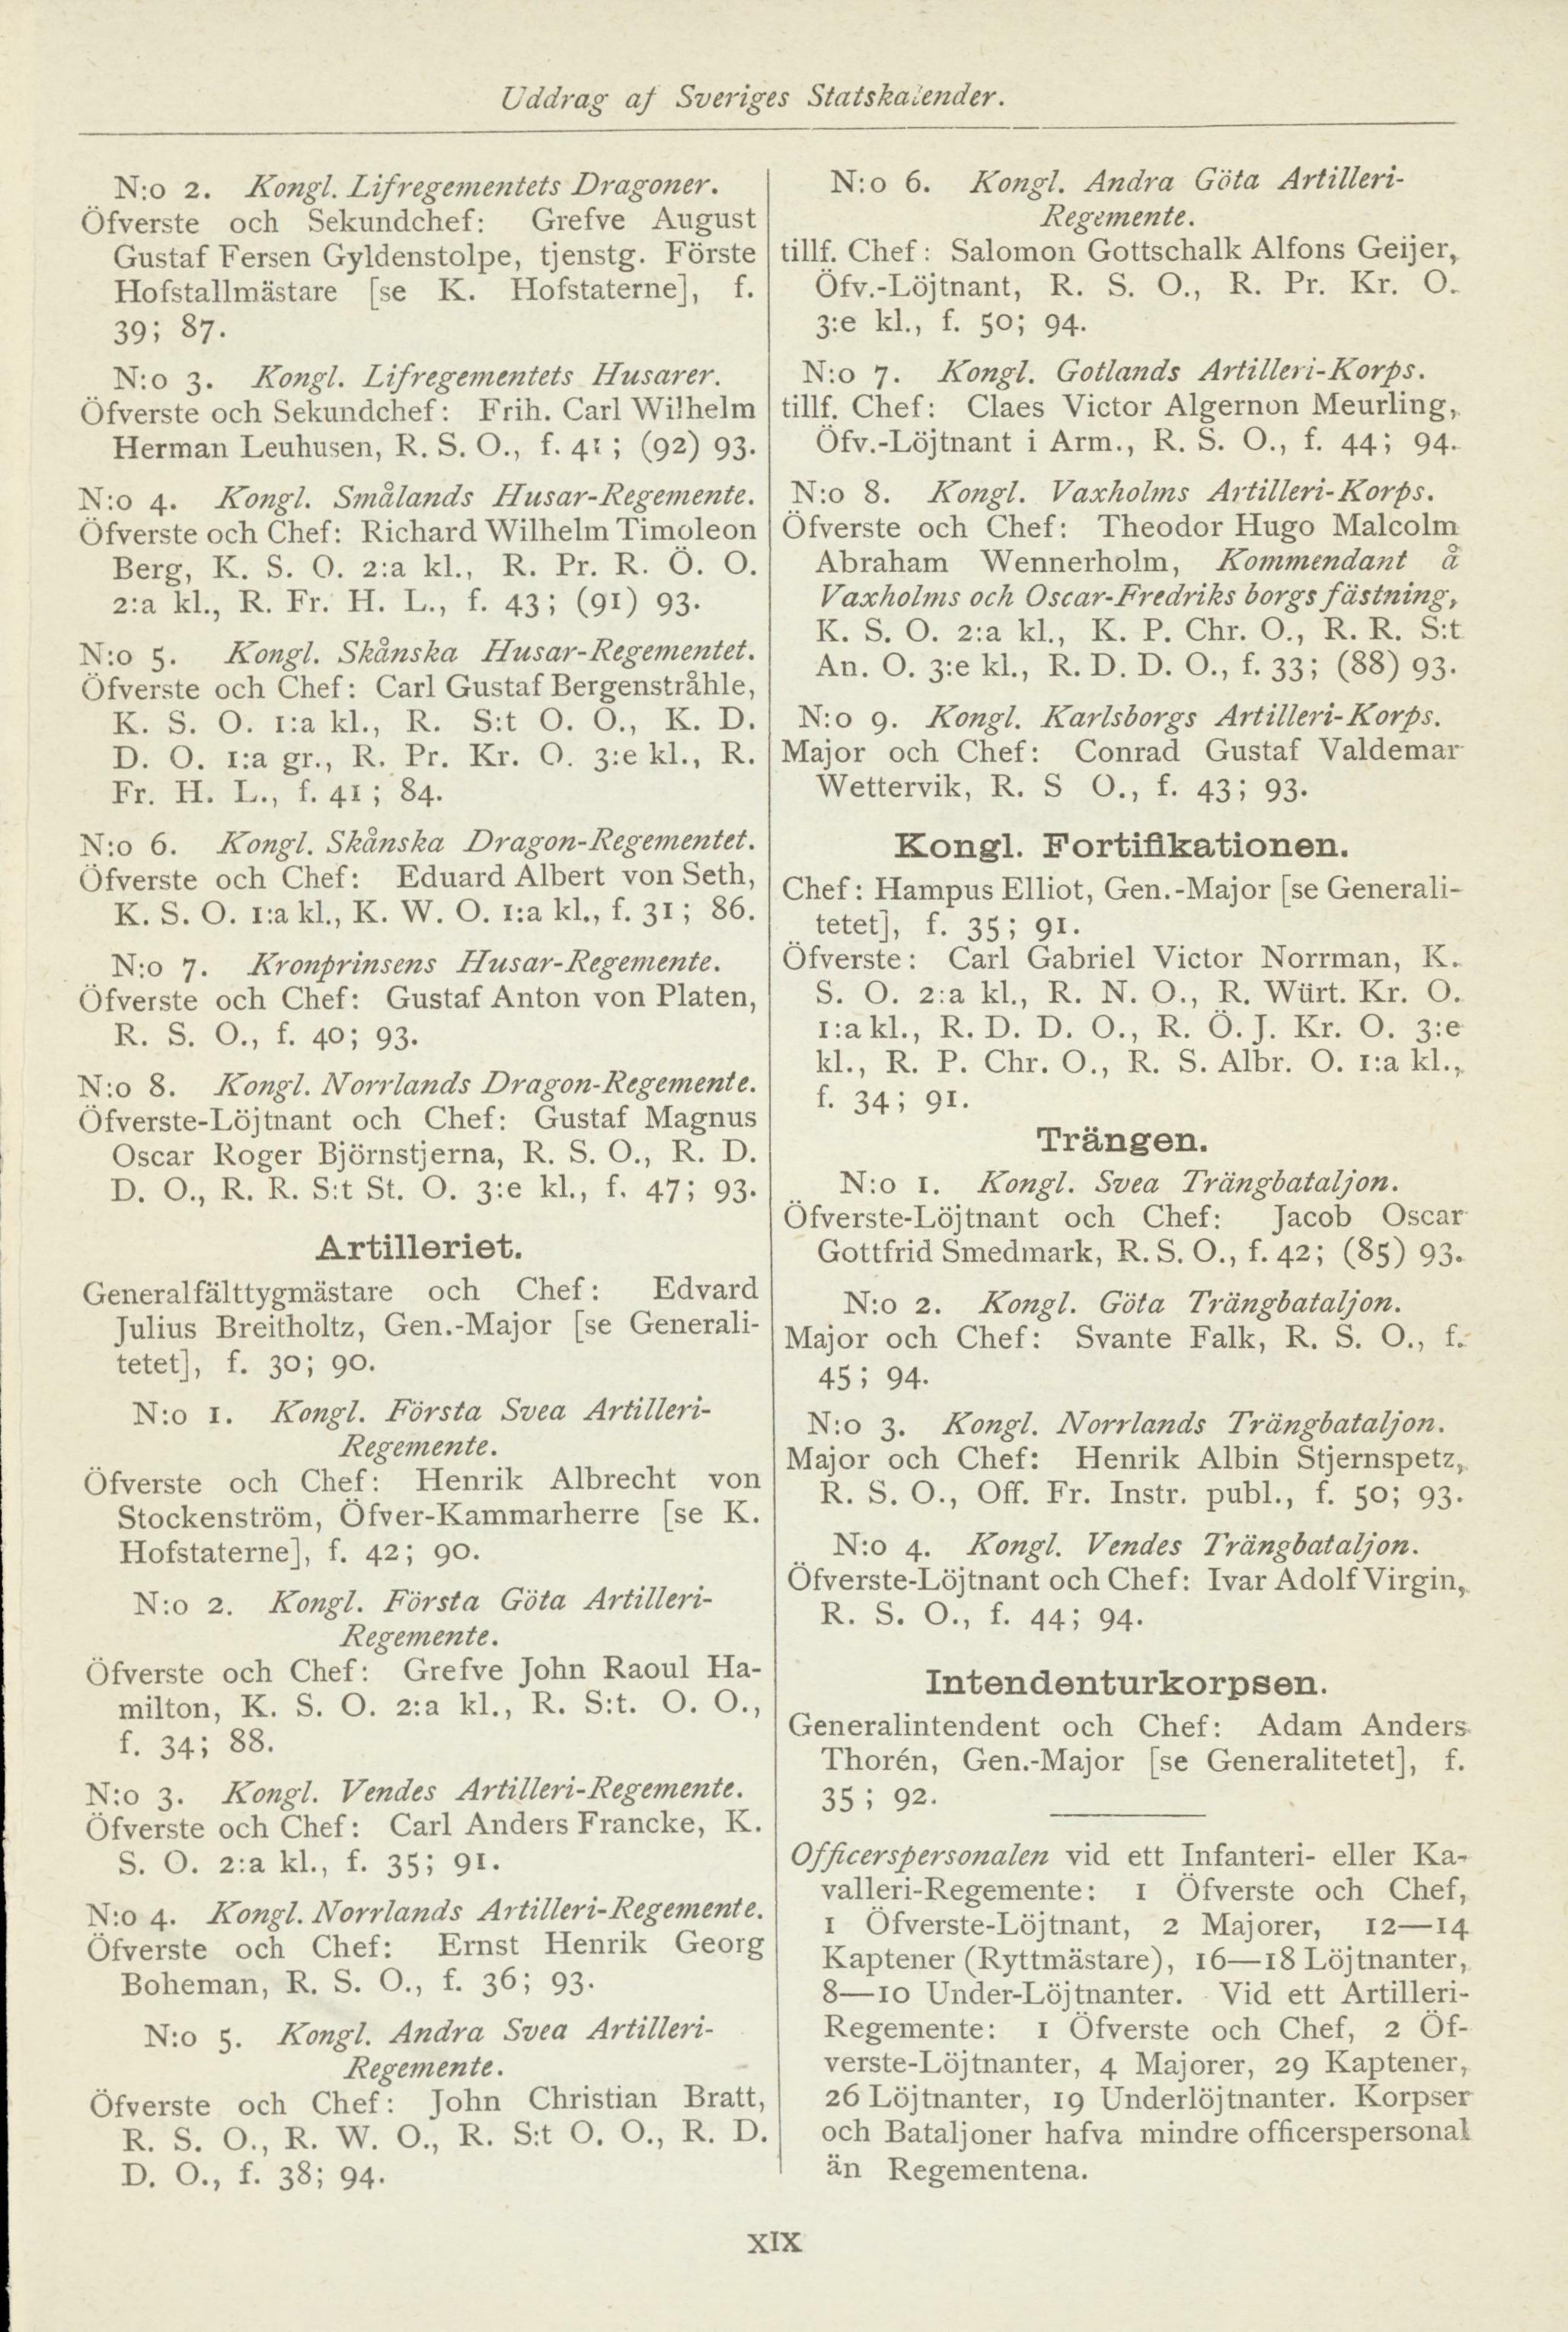 Uddrag af Sveriges Statskalender.
N:o 2. Kongl. Lifregementets Dragoner.
Öfverste och Sekundchef: Grefve August
Gustaf Fersen Gyldenstolpe, tjenstg. Förste
Hofstallmästare [se K. Hofstaterne], f.
39; 87.
N:o 3. Kongl. Lifregementets Husarer.
Öfverste och Sekundchef: Frih. Carl Wilhelm
Herman Leuhusen, R. S. O., f. 41; (92) 93.
N:o 4. Kongl. Smålands Husar-Regemente.
Öfverste och Chef: Richard Wilhelm Timoleon
Berg, K. S. O. 2:a kl., R. Pr. R. Ö. O.
2:a kl., R. Fr. H. L., f. 43; (91) 93.
N:o 5. Kongl. Skånska Husar-Regementet.
Öfverste och Chef: Carl Gustaf Bergenstråhle,
K. S. O. 1:a kl., R. S:t O. O., K. D.
D. O. 1:a gr., R. Pr. Kr. O. 3:e kl., R.
Fr. H. L., f. 41; 84.
N:o 6. Kongl. Skånska Dragon-Regementet.
Öfverste och Chef: Eduard Albert von Seth,
K. S. O. 1:a kl., K. W. O. 1:a kl., f. 31; 86.
N:o 7. Kronprinsens Husar-Regemente.
Öfverste och Chef: Gustaf Anton von Platen,
R. S. O., f. 40; 93.
N:o 8. Kongl. Norrlands Dragon-Regemente.
Öfverste-Löjtnant och Chef: Gustaf Magnus
Oscar Roger Björnstjerna, R. S. O., R. D.
D. O., R. R. S:t St. O. 3:e kl., f. 47; 93.
Artilleriet.
Generalfälttygmästare och Chef: Edvard
Julius Breitholtz, Gen.-Major [se Generali-
tetet], f. 30; 90.
N:o 1. Kongl. Första Svea Artilleri-
Regemente.
Öfverste och Chef: Henrik Albrecht von
Stockenström, Öfver-Kammarherre [se K.
Hofstaterne], f. 42; 90.
N:o 2. Kongl. Första Göta Artilleri-
Regemente.
Öfverste och Chef: Grefve John Raoul Ha-
milton, K. S. O. 2:a kl., R. S:t. O. O.,
f. 34; 88.
N:o 3. Kongl. Vendes Artilleri-Regemente.
Öfverste och Chef: Carl Anders Francke, K.
S. O. 2:a kl., f. 35; 91.
N:o 4. Kongl. Norrlands Artilleri-Regemente.
Öfverste och Chef: Ernst Henrik Georg
Boheman, R. S. O., f. 36; 93.
N:o 5. Kongl. Andra Svea Artilleri-
Regemente.
Öfverste och Chef: John Christian Bratt,
R. S. O., R. W. O., R. S:t O. O., R. D.
D. O., f. 38; 94.
N:o 6. Kongl. Andra Göta Artilleri-
Regemente.
tillf. Chef: Salomon Gottschalk Alfons Geijer,
Öfv.-Löjtnant, R. S. O., R. Pr. Kr. O.
3:e kl., f. 50; 94.
N:o 7. Kongl. Gotlands Artilleri-Korps.
tillf. Chef: Claes Victor Algernon Meurling,
Öfv.-Löjtnant i Arm., R. S. O., f. 44; 94.
N:o 8. Kongl. Vaxholms Artilleri-Korps.
Öfverste och Chef: Theodor Hugo Malcolm
Abraham Wennerholm, Kommendant å
Vaxholms och Oscar-Fredriks borgs fästning,
K. S. O. 2:a kl., K. P. Chr. O., R. R. S:t
An. O. 3:e kl., R. D. D. O., f. 33; (88) 93.
N:o 9. Kongl. Karlsborgs Artilleri-Korps.
Major och Chef: Conrad Gustaf Valdemar
Wettervik, R. S O., f. 43; 93.
Kongl. Fortifikationen.
Chef: Hampus Elliot, Gen.-Major [se Generali-
tetet], f. 35; 91.
Öfverste: Carl Gabriel Victor Norrman, K.
S. O. 2:a kl., R. N. O., R. Würt. Kr. O.
1:a kl., R. D. D. O., R. Ö. J. Kr. O. 3:e
kl., R. P. Chr. O., R. S. Albr. O. 1:a kl.,
f. 34; 91.
Trängen.
N:o 1. Kongl. Svea Trängbataljon.
Öfverste-Löjtnant och Chef: Jacob Oscar
Gottfrid Smedmark, R. S. O., f. 42; (85) 93.
N:o 2. Kongl. Göta Trängbataljon.
Major och Chef: Svante Falk, R. S. O., f.
45; 94.
N:o 3. Kongl. Norrlands Trängbataljon.
Major och Chef: Henrik Albin Stjernspetz,
R. S. O., Off. Fr. Instr. publ., f. 50; 93.
N:o 4. Kongl. Vendes Trängbataljon.
Öfverste-Löjtnant och Chef: Ivar Adolf Virgin,
R. S. O., f. 44; 94.
Intendenturkorpsen.
Generalintendent och Chef: Adam Anders
Thorén, Gen.-Major [se Generalitetet], f.
35; 92.
Officerspersonalen vid ett Infanteri- eller Ka-
valleri-Regemente: 1 Öfverste och Chef,
1 Öfverste-Löjtnant, 2 Majorer, 12—14
Kaptener (Ryttmästare), 16—18 Löjtnanter,
8—10 Under-Löjtnanter. Vid ett Artilleri-
Regemente: 1 Öfverste och Chef, 2 Öf-
verste-Löjtnanter, 4 Majorer, 29 Kaptener,
26 Löjtnanter, 19 Underlöjtnanter. Korpser
och Bataljoner hafva mindre officerspersonal
än Regementena.
XIX